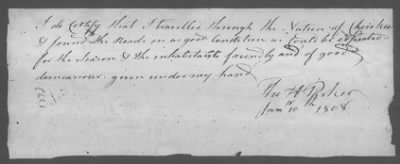 I do Certify that I travelled through the Nation of Cherokee
& found the Roads in as good Condition as Could be expected
for the Season & the inhabitants friendly and of good
demeanour. given under my hand
Tho H Parker
Jany 10th 1808